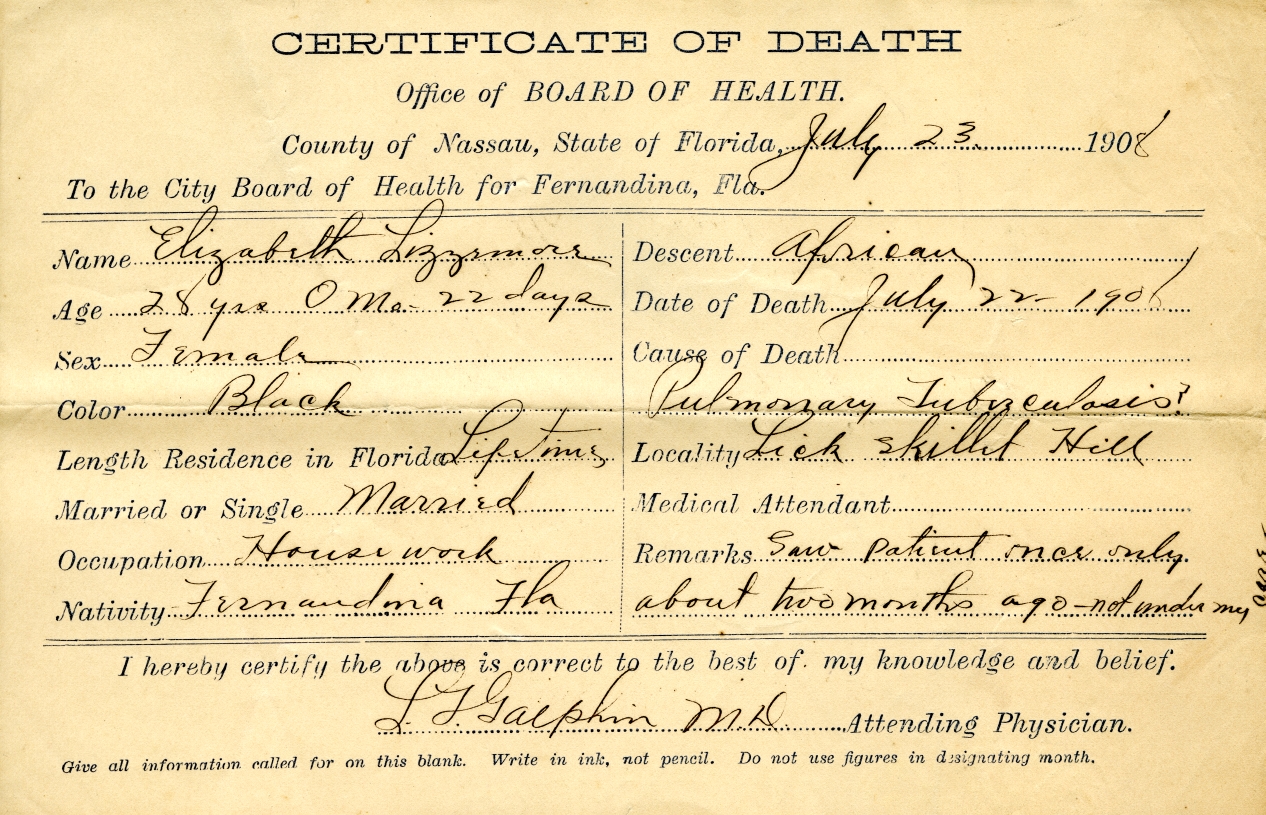 CERTIFICATE OF DEATH
Office of BOARD OF HEALTH.
County of Nassau, State of Florida, July 23 1908
To the City Board of Health for Fernandina, Fla.
Name Elizabeth
Age 28 yrs 0 Mo- 22 days
Sex Female
Color Black
Length Residence in Florida Life time
Married or Single Married
Occupation House work
Nativity Fernandina Fla
Descent African
Date of Death July 22- 1908
Cause of Death
Pulmonary Tuberculosis?
Locality Lick skillet Hill
Medical Attendant
Remarks Saw patient once only
about two months ago - not under my care
I hereby certify the above is correct to the best of my knowledge and belief.
L. G. Galphin M.D. Attending Physician.
Give all information called for on this blank. Write in ink, not pencil. Do not use figures in designating month.